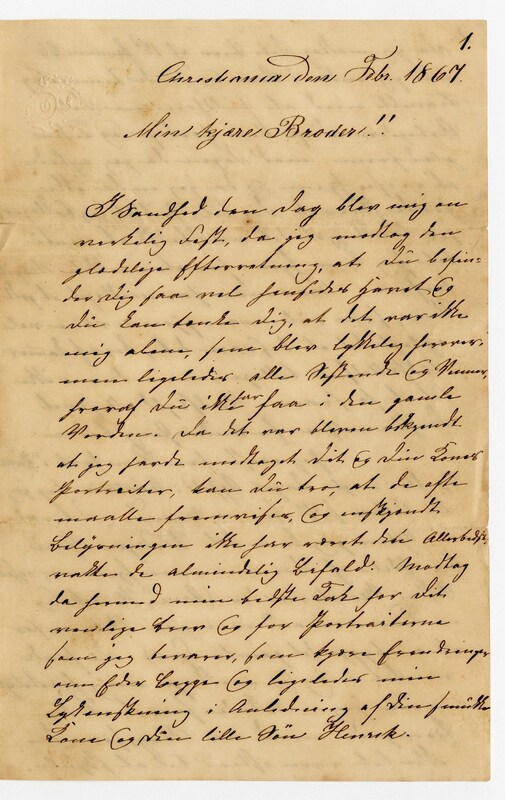 1.
Christiania den Febr. 1867.
Min kjære Broder!!
I Sandhed den Dag blev mig en
verkelig Fest, da jeg modtog den
glædelige Efterretning, at Du befin-
der Dig saa vel hinsides Havet og
Du kan tænke Dig, at det var ikke
mig alene, som blev lykkelig herover
men ligeledes alle Søskende og Venner,
hvoraf Du ikke har faa i den gamle
Verden. Da det var bleven bekjendt
at jeg havde modtaget Dit og Din Kones
Portraiter, kan Du tro, at de ofte
maatte fremvises, og enskjøndt
Belysningen ikke har været den Allerbedste
vakte de almindelig Bifald. Modtag
da hermed min bedste Tak for Dit
venlige Brev og for Portraiterne
som jeg bevarer, som kjære Erendringer
om Eder begge og ligeledes min
Lykønskning i Anledning af Din smukke
Kone og Din lille Søn Henrik.